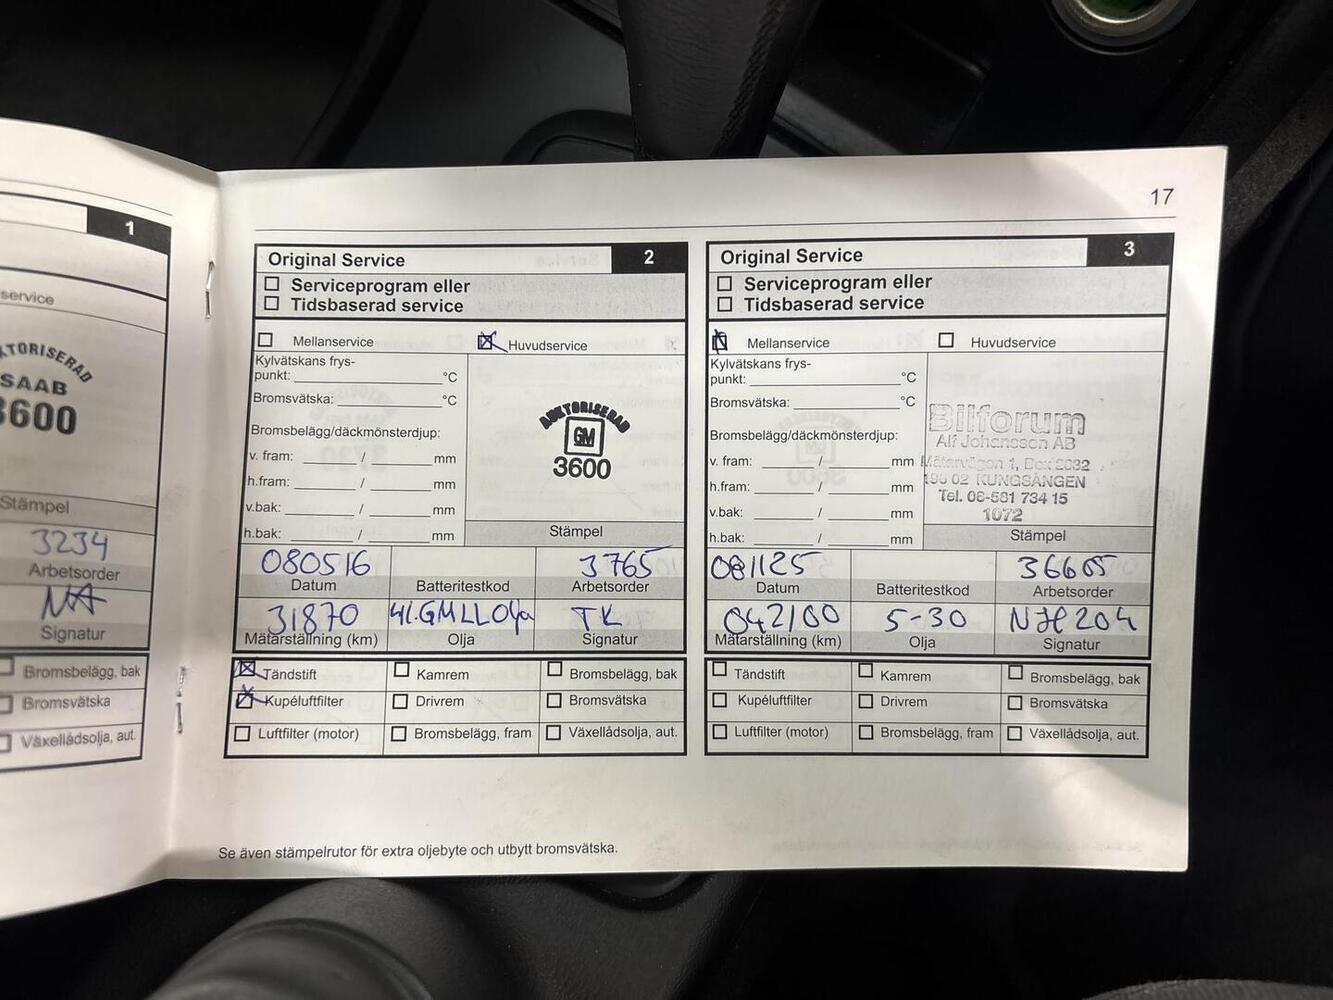 1
service
AUKTORISERAD
SAAB
3600
Stämpel
3234
Arbetsorder
NA
Signatur
Bromsbelägg, bak
Bromsvätska
Växellådsolja, aut.
17
Original Service 2
Serviceprogram eller
Tidsbaserad service
Mellanservice Huvudservice
Kylvätskans frys-
punkt: °C
Bromsvätska: °C
Bromsbelägg/däckmönsterdjup:
v. fram: / mm
h.fram: / mm
v.bak: / mm
h.bak: / mm
AUKTORISERAD
GM
3600
Stämpel
080516 3765
Datum Batteritestkod Arbetsorder
31870 4l.GMLLOlja TK
Mätarställning (km) Olja Signatur
Tändstift Kamrem Bromsbelägg, bak
Kupéluftfilter Drivrem Bromsvätska
Luftfilter (motor) Bromsbelägg, fram Växellådsolja, aut.
Original Service 3
Serviceprogram eller
Tidsbaserad service
Mellanservice Huvudservice
Kylvätskans frys-
punkt: °C
Bromsvätska: °C
Bromsbelägg/däckmönsterdjup:
v. fram: / mm
h.fram: / mm
v.bak: / mm
h.bak: / mm
Bilforum
Alf Johansson AB
Mätarvägen 1, Box 2032
196 02 KUNGSÄNGEN
Tel. 08-581 734 15
1072
Stämpel
081125 36605
Datum Batteritestkod Arbetsorder
042100 5-30 NH204
Mätarställning (km) Olja Signatur
Tändstift Kamrem Bromsbelägg, bak
Kupéluftfilter Drivrem Bromsvätska
Luftfilter (motor) Bromsbelägg, fram Växellådsolja, aut.
Se även stämpelrutor för extra oljebyte och utbytt bromsvätska.